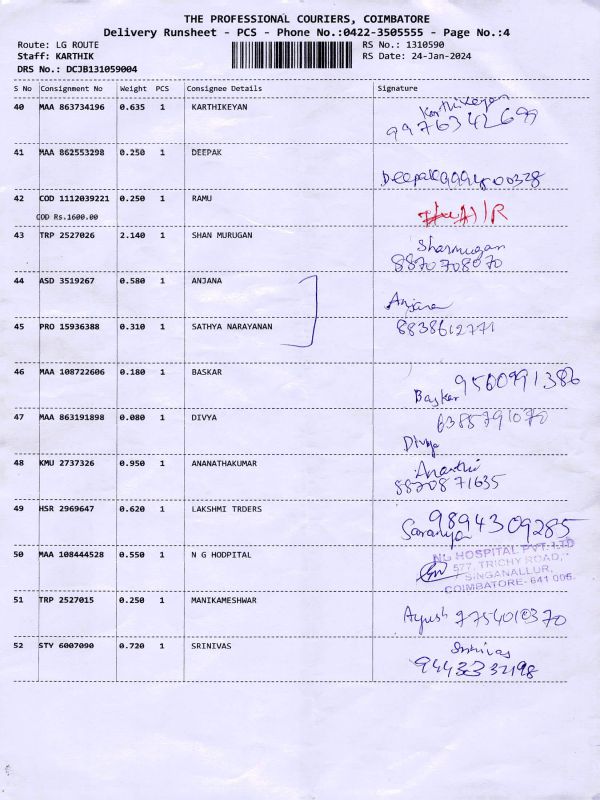 THE PROFESSIONAL COURIERS, COIMBATORE
Delivery Runsheet - PCS - Phone No.:0422-3505555 - Page No.:4
Route: LG ROUTE RS No.: 1310590
Staff: KARTHIK RS Date: 24-Jan-2024
DRS No.: DCJB131059004
S No Consignment No Weight PCS Consignee Details Signature
40 MAA 863734196 0.635 1 KARTHIKEYAN Karthikeyan
9976342699
41 MAA 862553298 0.250 1 DEEPAK
Deepak 9994800328
42 COD 1112039221 0.250 1 RAMU
COD Rs.1600.00
43 TRP 2527026 2.140 1 SHAN MURUGAN Shanmugan
8870708070
44 ASD 3519267 0.580 1 ANJANA
Anjana
45 PRO 15936388 0.310 1 SATHYA NARAYANAN 8838612771
46 MAA 108722606 0.180 1 BASKAR 9560991386
Basker
47 MAA 863191898 0.080 1 DIVYA 6385791070
Divya
48 KMU 2737326 0.950 1 ANANATHAKUMAR Ananthi
8870871635
49 HSR 2969647 0.620 1 LAKSHMI TRDERS 9894309285
Saranya
50 MAA 108444528 0.550 1 N G HODPITAL NG HOSPITAL PVT. LTD
577, TRICHY ROAD,
SINGANALLUR,
COIMBATORE- 641 005.
51 TRP 2527015 0.250 1 MANIKAMESHWAR
Ayush 9754010370
52 STY 6007090 0.720 1 SRINIVAS Srinivas
9443332198